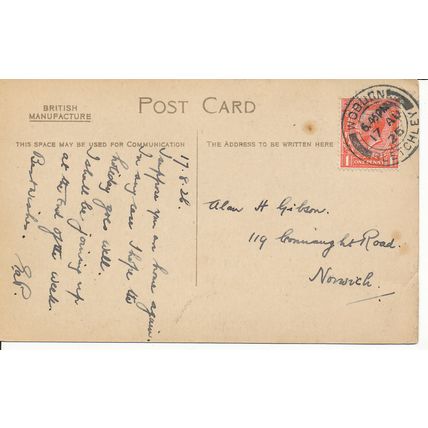 BRITISH
MANUFACTURE
POST CARD
THIS SPACE MAY BE USED FOR COMMUNICATION
THE ADDRESS TO BE WRITTEN HERE
17.8.26.
I suppose you are home again.
In any case I hope the
holiday goes well.
I shall be joining up
at the end of the week.
Best wishes.
Alan H Gibson.
119 Connaught Road.
Norwich.
WOBURN
17 AU
26
ONE PENNY